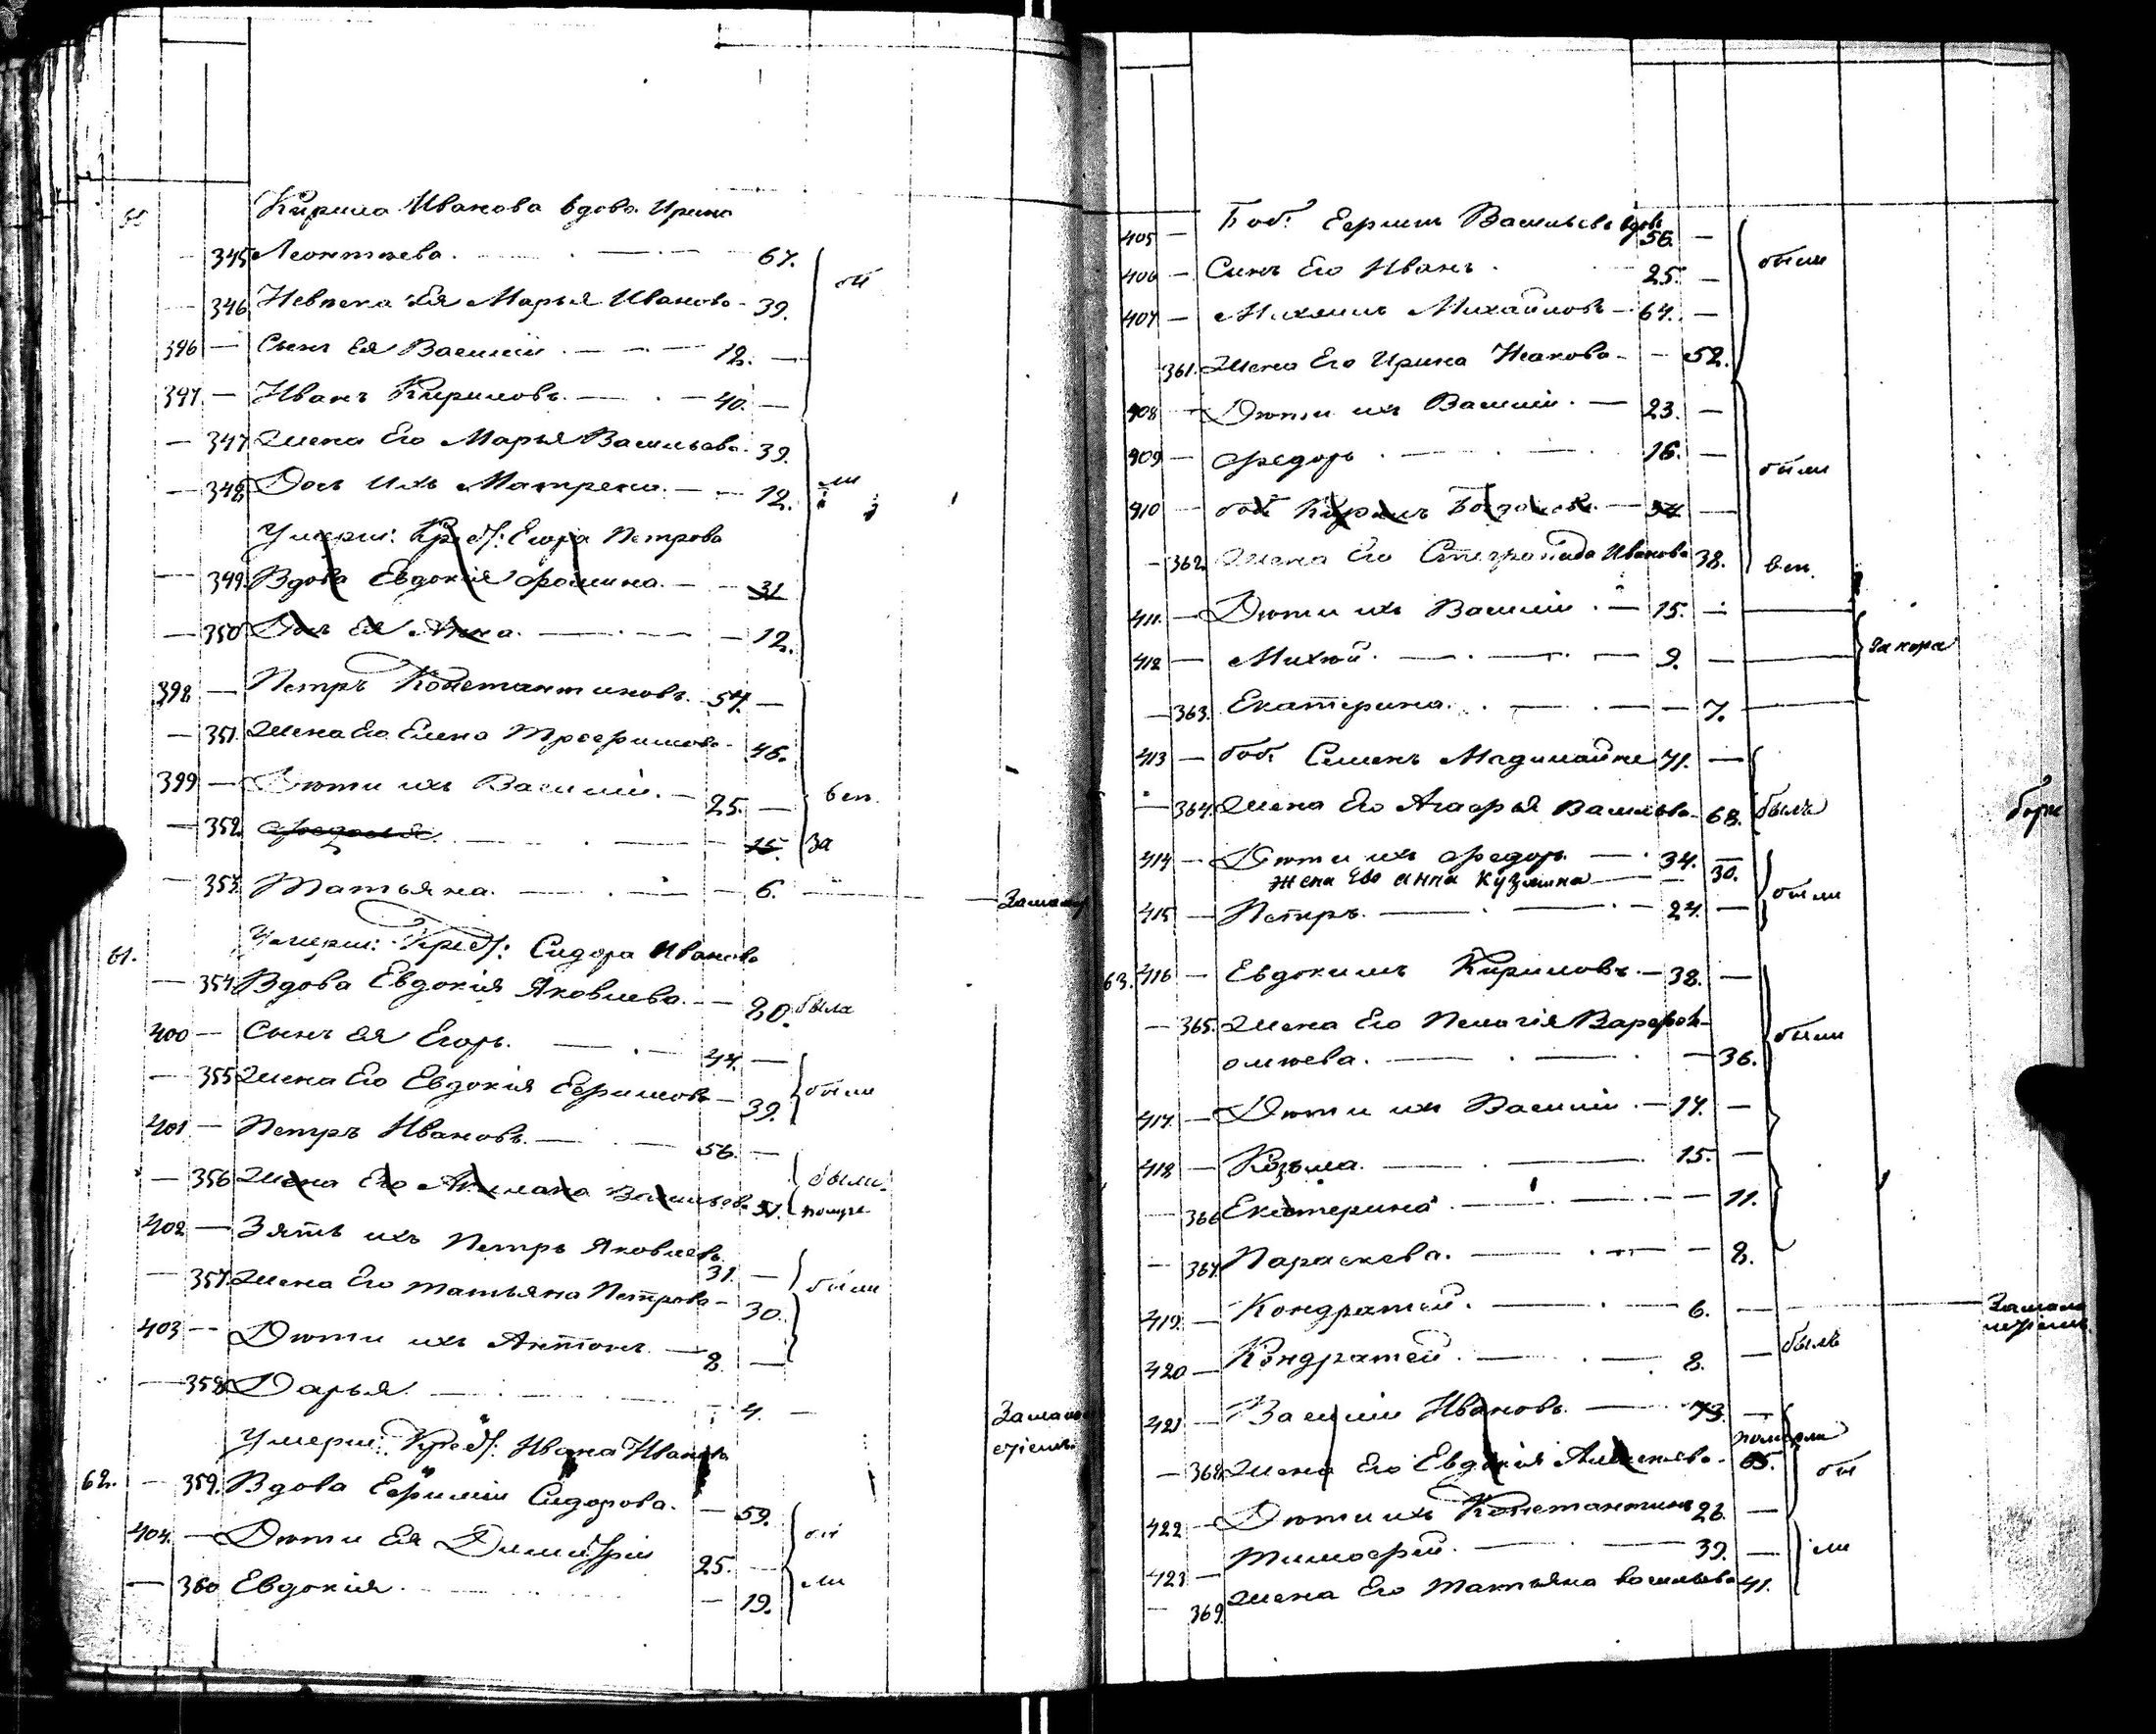 Кирила Иванова вдова Ирина
345 Леонтиева. 67.
346 Невѣска Ея Марья Иванова 39.
396 Сынъ Ея Василiй 12.
397. Иванъ Кириловъ. 40.
347 Жена Его Марья Васильева. 39.
348. Дочь Ихъ Матрена. 12.
Умерш: Крест: Егора Петрова
349. Вдова Евдокiя Фомина. 31
350 Дочь Ея Анна. 12.
398 Петръ Константиновъ. 57.
351. Жена Его Елена Трофимова 46.
399 Дѣти ихъ Василiй. 25. вел.
352. Федосья. 15. за
353. Татьяна. 6.
61. Умерш: Крест: Сидора Иванова
354. Вдова Евдокiя Яковлева. 80. была
400 Сынъ Ея Егоръ. 44.
355 Жена Его Евдокiя Ефимова 39. были
401 Петръ Ивановъ. 56.
356 Жена Его Васильев. 51. были
402 Зять ихъ Петръ Яковлевъ 31.
357. Жена Его Татьяна Петрова 30. были
403 Дѣти ихъ Антонъ 8.
358. Дарья. 4.
Умерш: Крест: Ивана Иванова
62. 359. Вдова Ефимiи Сидорова. 59.
404. Дѣти Ея Димитрiй 25. бы
360 Евдокiя. 19. ли
405 Боб: Ефимъ Васильевъ вдов 56.
406 Сынъ Его Иванъ. 25. были
407 Михаилъ Михайловъ 64.
361. Жена Его Ирина Исакова 52.
408 Дѣти ихъ Василiй. 23.
409 Федоръ 16. были
410 боб: Кирилъ Богданов 54
362. Жена Его Степанида Иванова 38. вел.
411. Дѣти ихъ Василiй 15.
412 Михѣй. 9.
363. Екатерина. 7.
413 боб: Семенъ 71.
364. Жена Его Агафья Васильева 68. былъ
414 Дѣти ихъ Федоръ 34.
жена Ево Анна Кузмина 30. были
415 Петръ. 24.
63. 416 Евдокимъ Кириловъ 38.
365. Жена Его Пелагiя Варфол-
омѣева. 36. были
417. Дѣти ихъ Василiй. 17.
418 Козьма. 15.
366 Екатерина 11.
367. Параскева. 8.
419. Кондратей. 6.
420 Кондратей. 8. былъ
421 Василiй Ивановъ. 73. померли
368. Жена Его Евдокiя Алексѣева. 65. бы
422 Дѣти ихъ Константинъ 26.
423 Тимофей. 39. ли
369. Жена Его Татьяна Васильева 41.